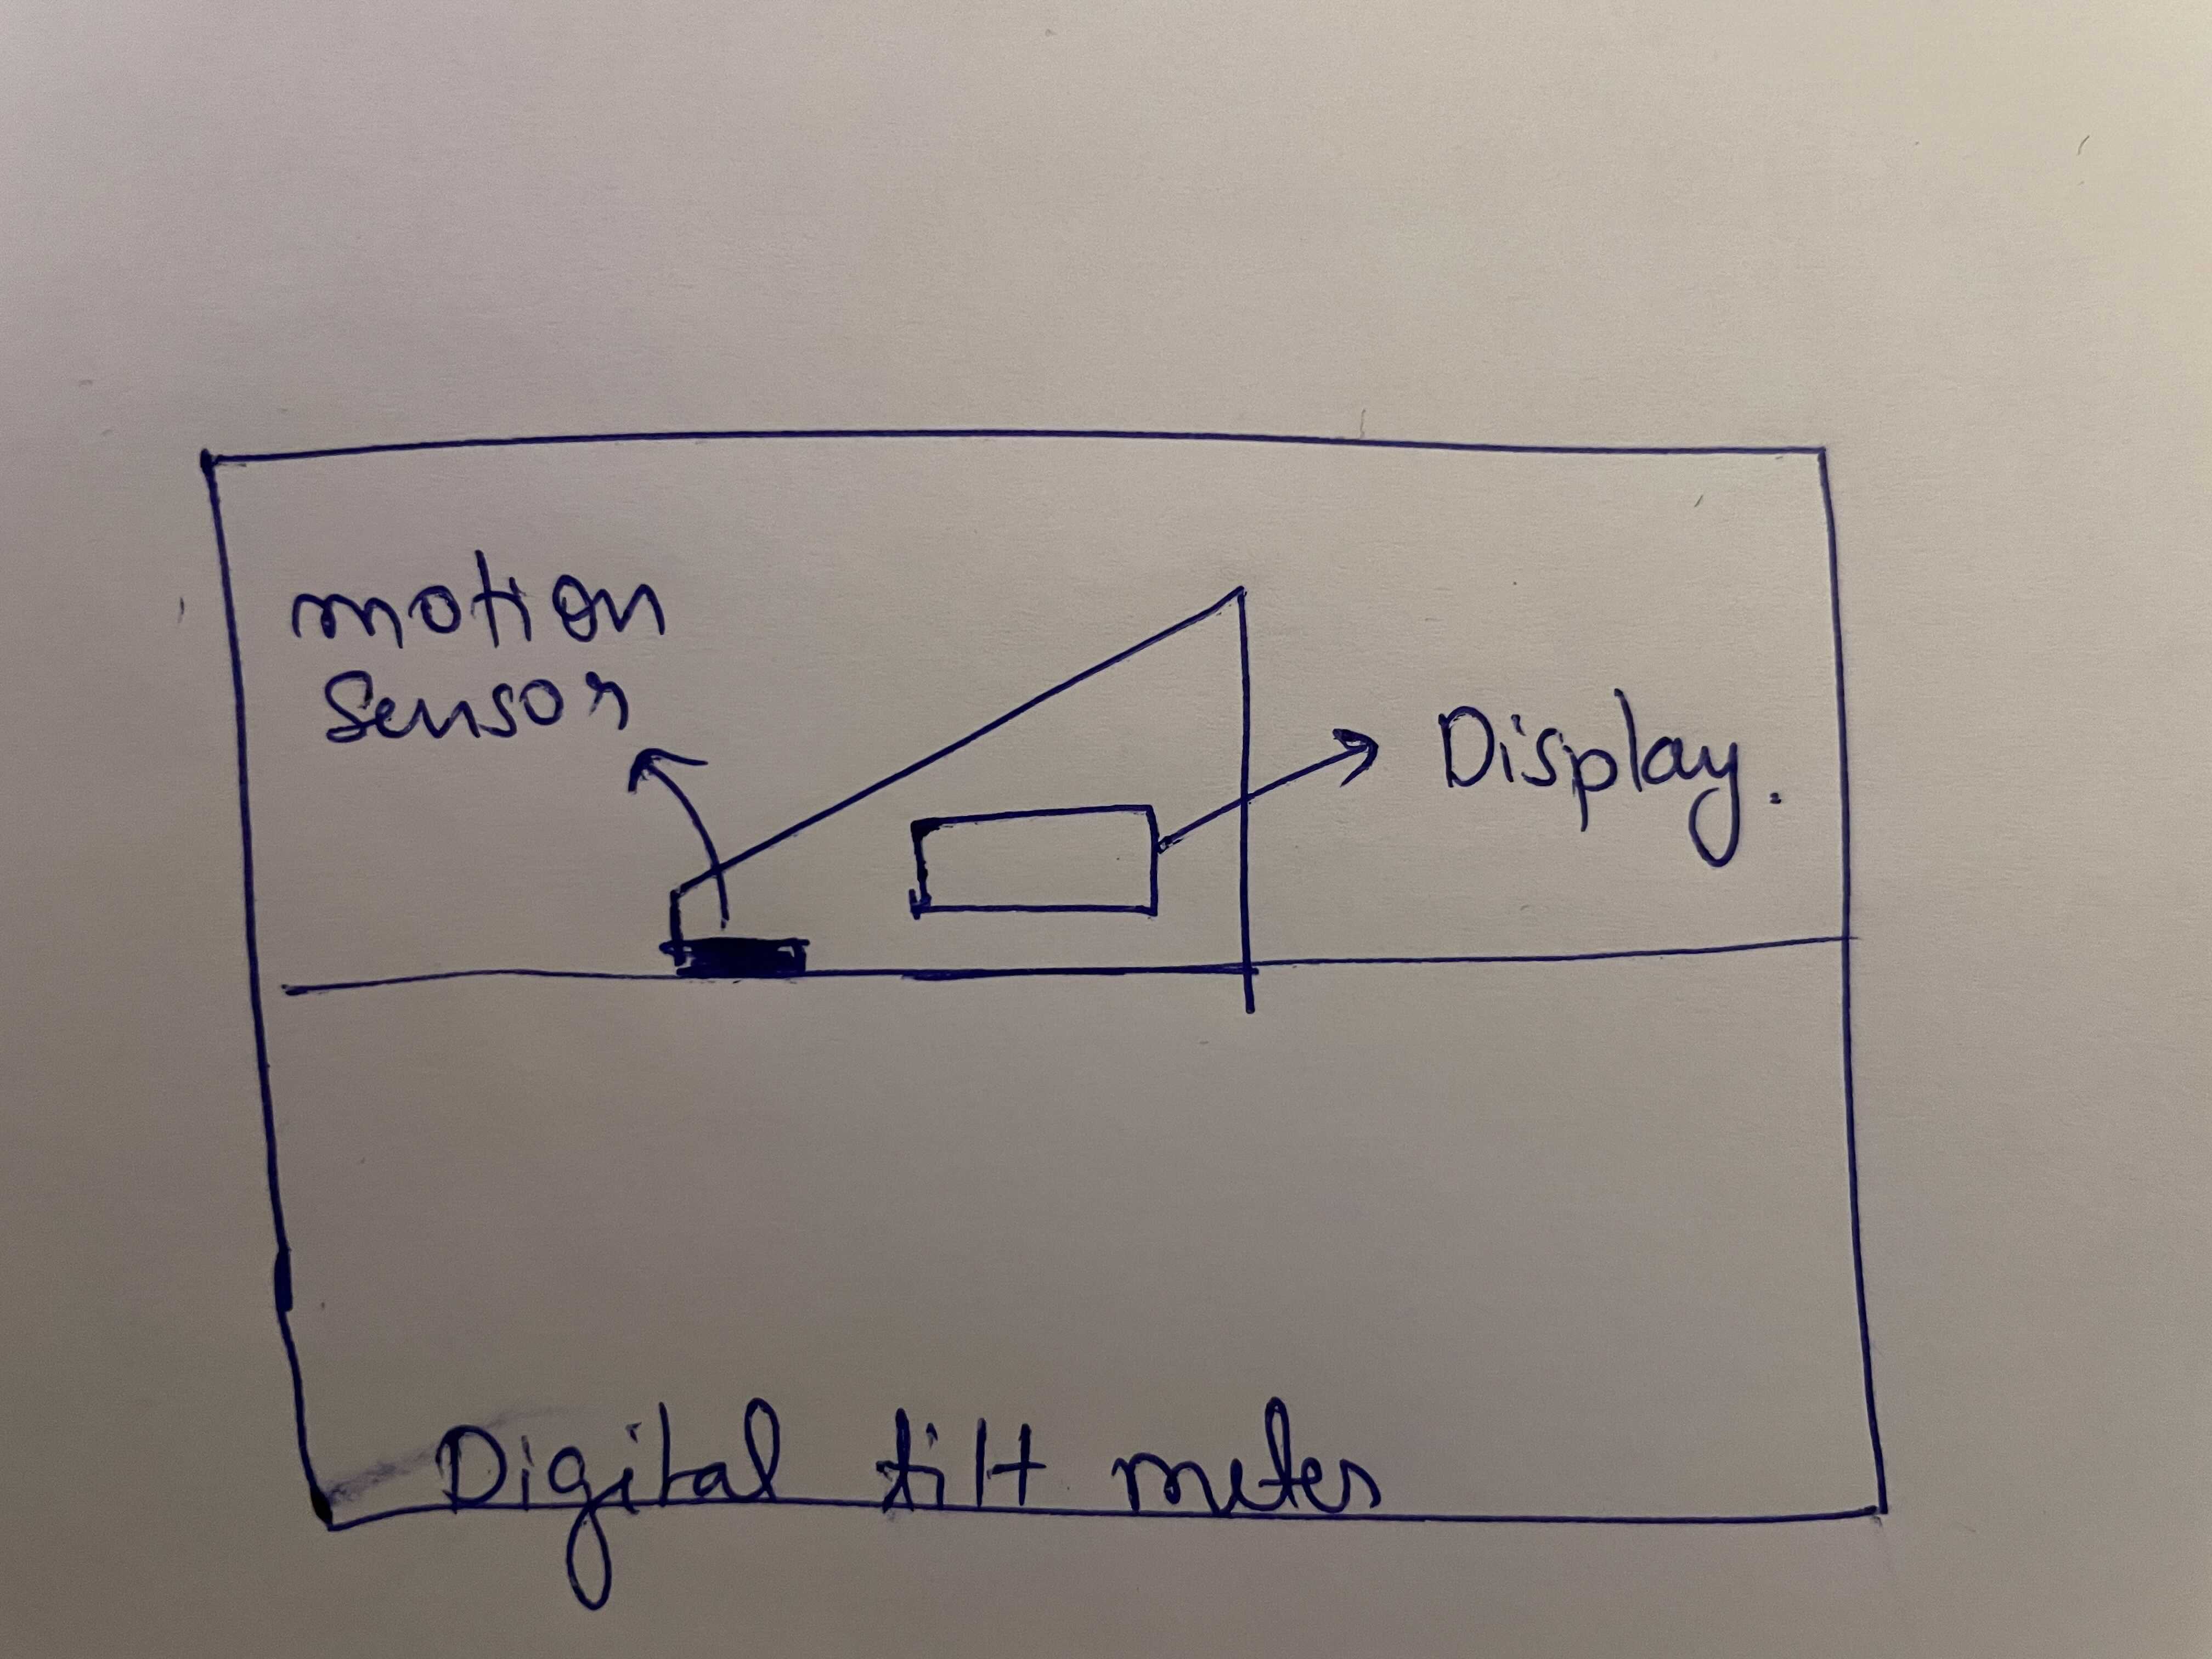 motion
Sensor
Display.
Digital tilt meter